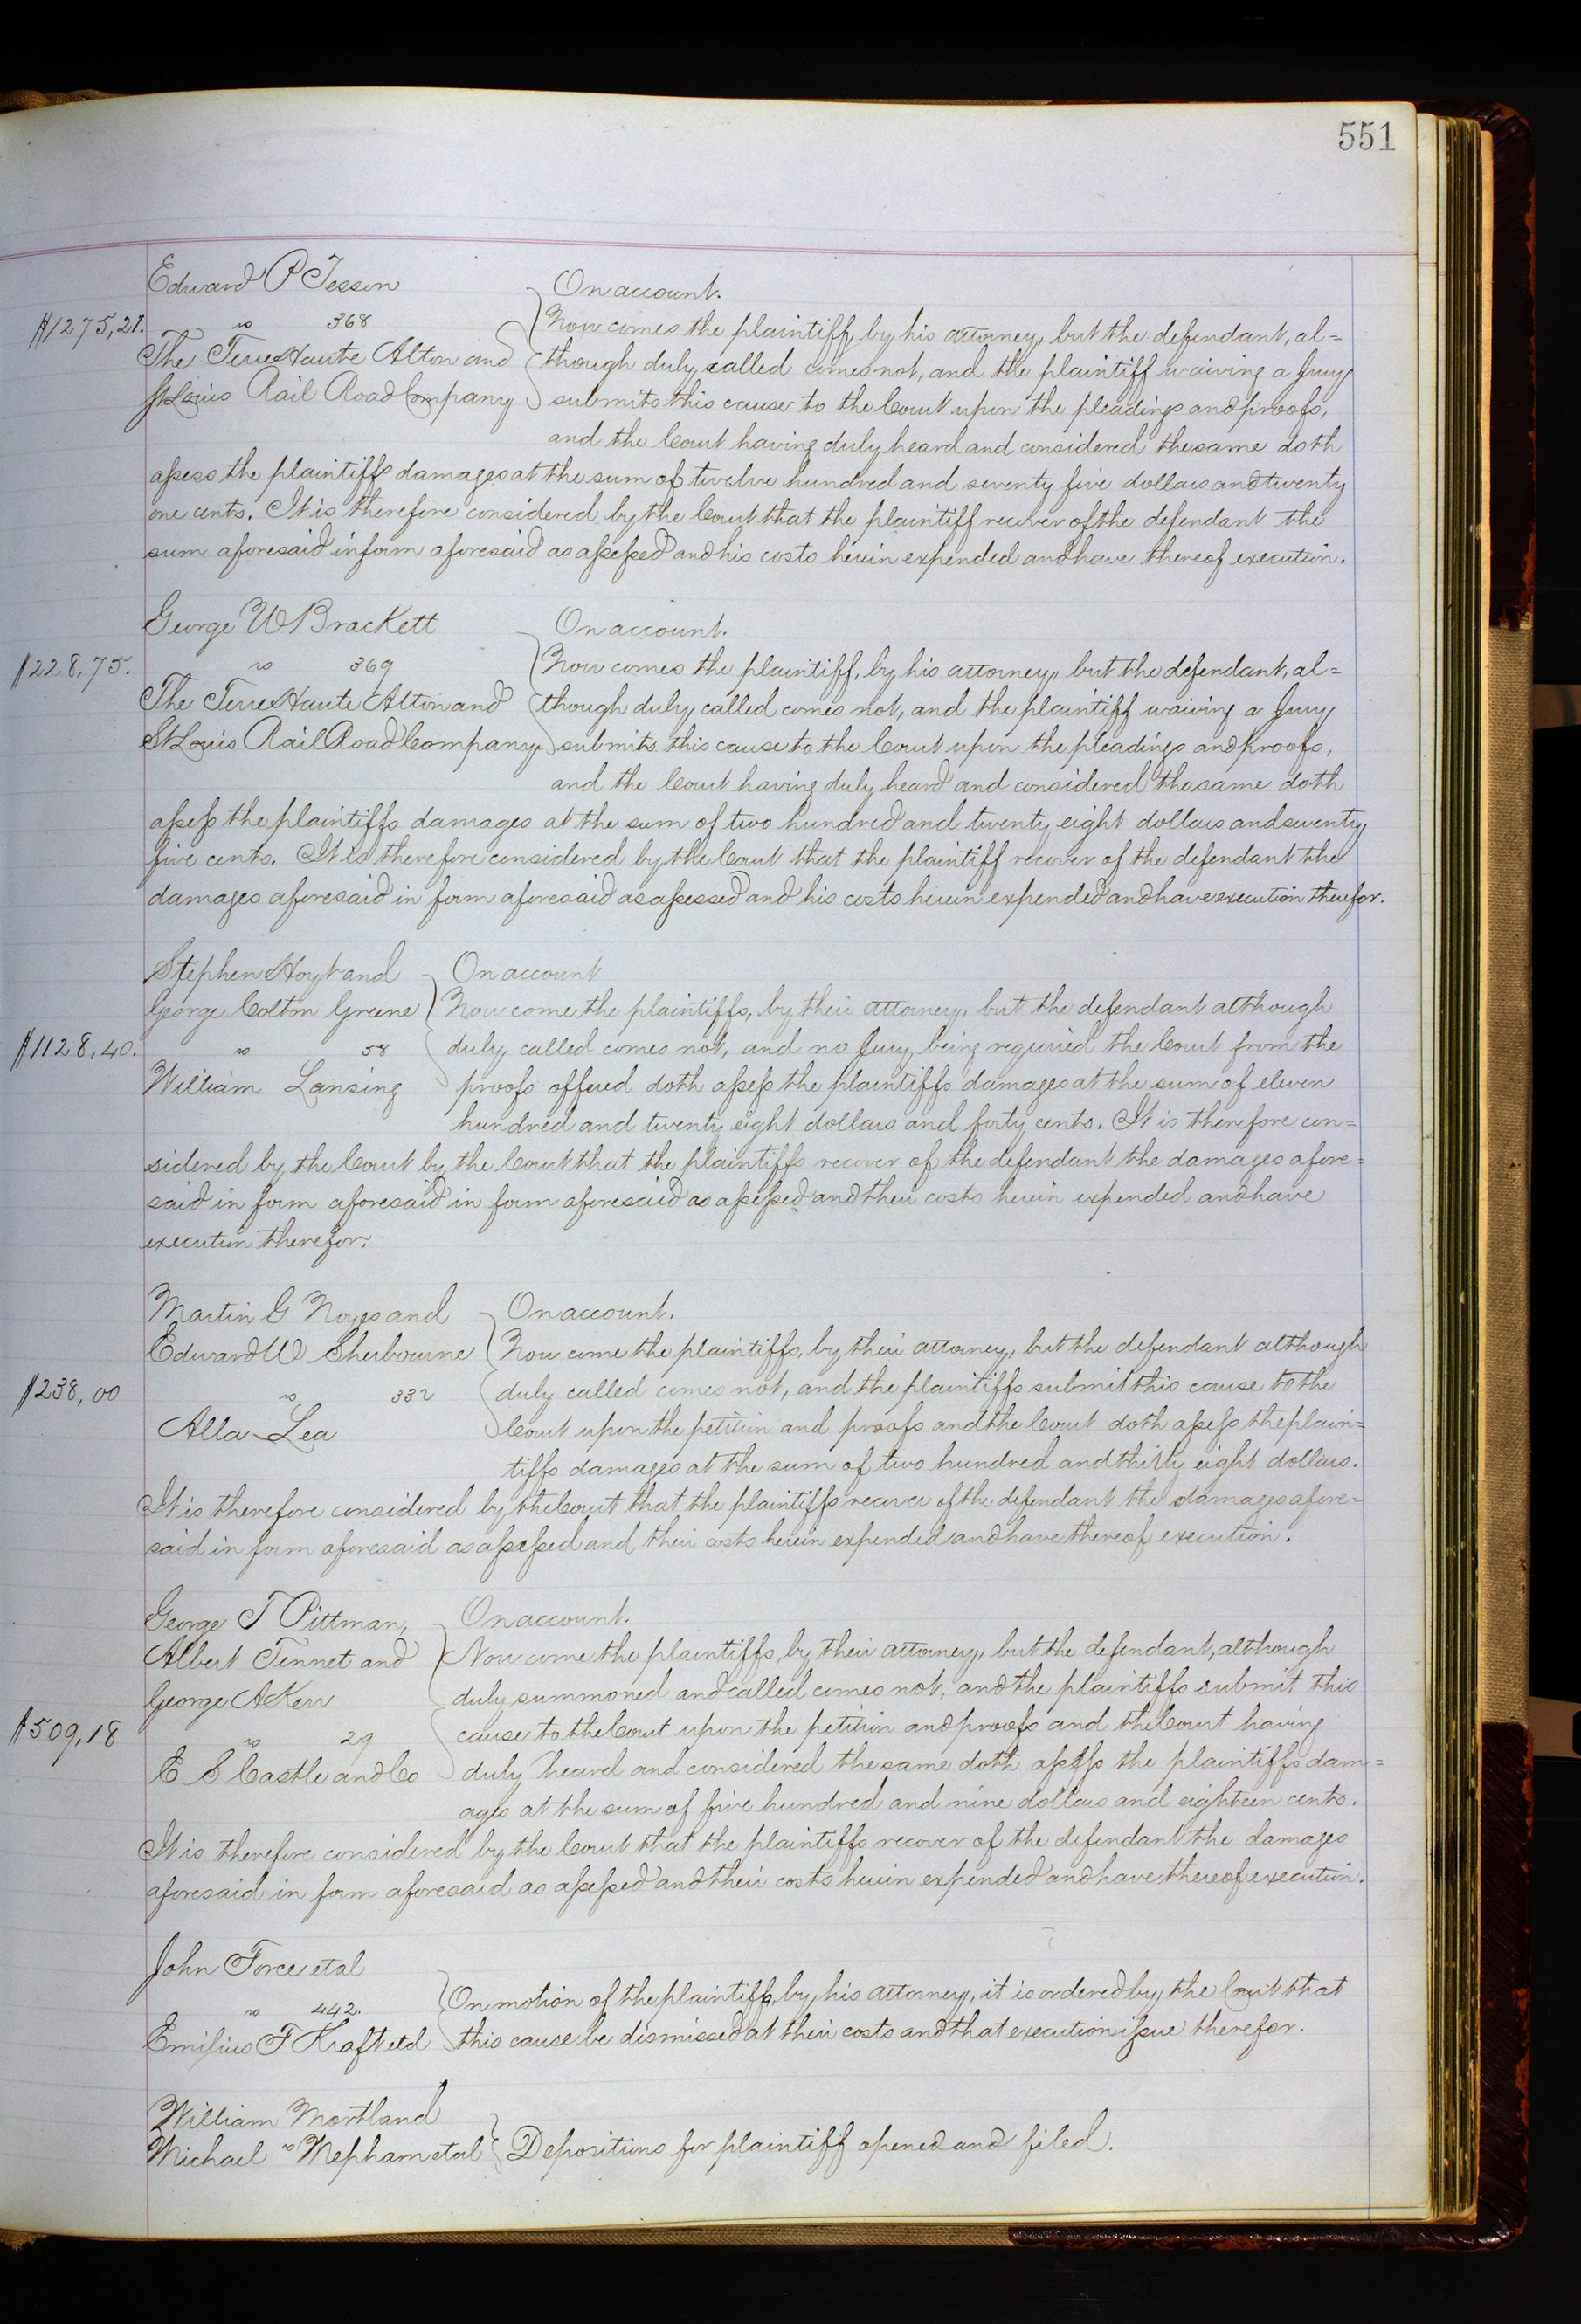 551
Edward P Tesson On account.
$1275,21. vs 368 Now comes the plaintiff, by his attorney, but the defendant, al=
The Terre Haute Alton and though duly called comes not, and the plaintiff waiving a Jury
St Louis Rail Road Company submits this cause to the Court upon the pleadings and proofs,
and the Court having duly heard and considered the same doth
assess the plaintiffs damages at the sum of twelve hundred and seventy five dollars and twenty
one cents. It is therefore considered by the Court that the plaintiff recover of the defendant the
sum aforesaid in form aforesaid as assessed and his costs herein expended and have thereof execution.
George W Brackett On account.
$228,75. vs 369 Now comes the plaintiff, by his attorney, but the defendant, al=
The Terre Haute Alton and though duly called comes not, and the plaintiff waiving a Jury
St Louis Rail Road Company submits this cause to the Court upon the pleadings and proofs,
and the Court having duly heard and considered the same doth
assess the plaintiffs damages at the sum of two hundred and twenty eight dollars and seventy
five cents. It is therefore considered by the Court that the plaintiff recover of the defendant the
damages aforesaid in form aforesaid as assessed and his costs herein expended and have execution therefor.
Stephen Hoyt and On account
George Colton Greene Now come the plaintiffs, by their attorney, but the defendant although
$1128,40. vs 58 duly called comes not, and no Jury being required the Court from the
William Lansing proofs offered doth assess the plaintiffs damages at the sum of eleven
hundred and twenty eight dollars and forty cents. It is therefore con=
sidered by the Court by the Court that the plaintiffs recover of the defendant the damages afore=
said in form aforesaid in form aforesaid as assessed and their costs herein expended and have
execution therefor.
Martin G Noyes and On account.
Edward W Sherbourne Now come the plaintiffs, by their attorney, but the defendant although
$238,00 vs 332 duly called comes not, and the plaintiffs submit this cause to the
Alla Lea Court upon the petition and proofs and the Court doth assess the plain=
tiffs damages at the sum of two hundred and thirty eight dollars.
It is therefore considered by the Court that the plaintiffs recover of the defendant the damages afore=
said in form aforesaid as assessed and their costs herein expended and have thereof execution.
George T Pittman, On account.
Albert Tennet and Now come the plaintiffs, by their attorney, but the defendant, although
George A Kerr duly summoned and called comes not, and the plaintiffs submit this
$509,18 vs 29 cause to the Court upon the petition and proofs and the Court having
E S Castle and Co duly heard and considered the same doth assess the plaintiffs dam=
ages at the sum of five hundred and nine dollars and eighteen cents.
It is therefore considered by the Court that the plaintiffs recover of the defendant the damages
aforesaid in form aforesaid as assessed and their costs herein expended and have thereof execution.
John Force etal
vs 442. On motion of the plaintiff, by his attorney, it is ordered by the Court that
Emilius F Kraft etal this cause be dismissed at their costs and that execution issue therefor.
William Mortland
Michael vs Mepham etal Depositions for plaintiff opened and filed.